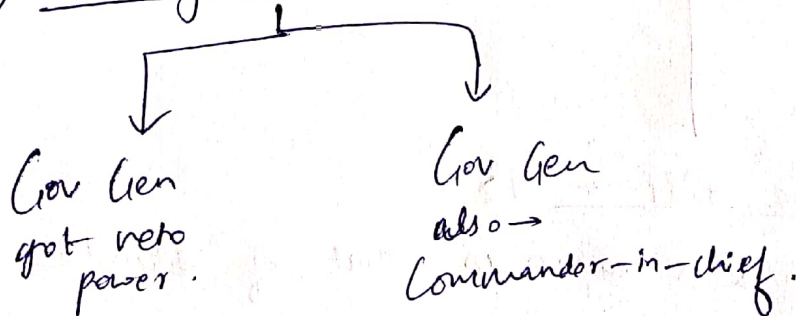 Gov Gen
got veto
power.
Gov Gen
also →
Commander-in-chief.